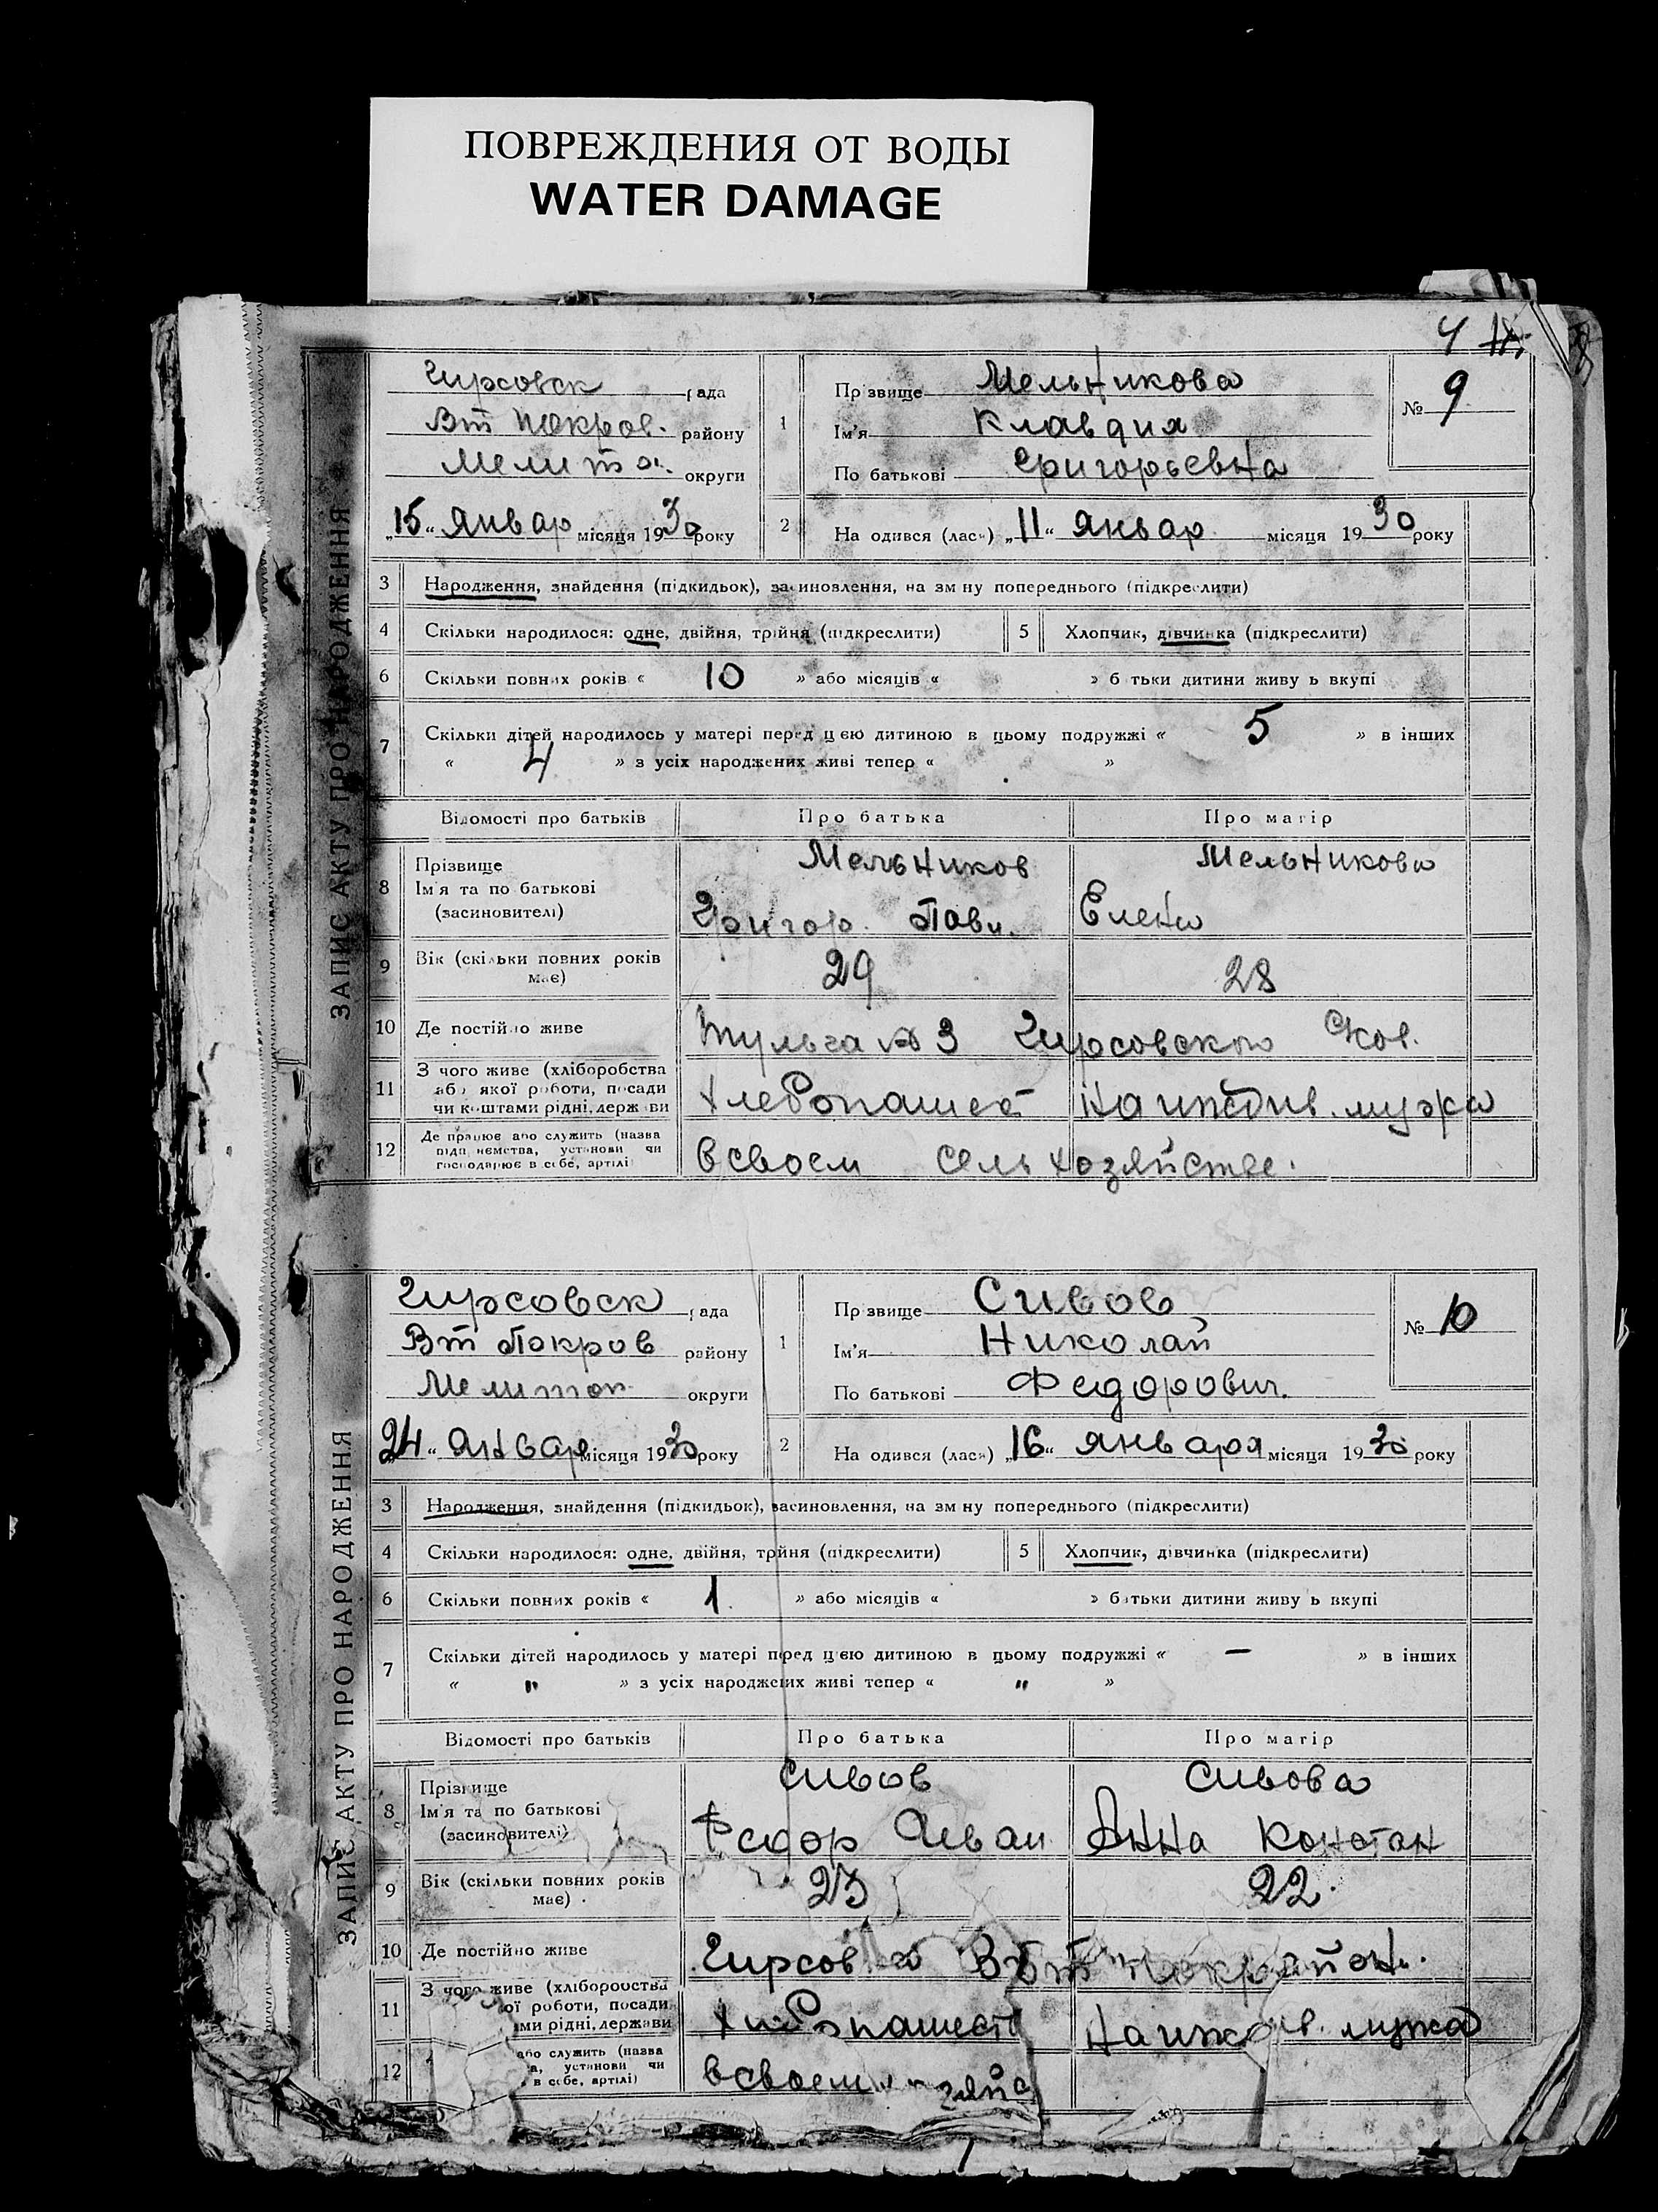 ПОВРЕЖДЕНИЯ ОТ ВОДЫ
WATER DAMAGE
4
ЗАПИС АКТУ ПРО НАРОДЖЕННЯ
Гирсовск рада
Вт Покров. району
Мелитоп. округи
„15“ Январ місяця 1930 року
1 Прізвище Мельникова
Ім'я Клавдия
По батькові Григорьевна
№ 9
2 На одився (лась) „11“ Январ. місяця 1930 року
3 Народження, знайдення (підкидьок), засиновлення, на зм ну попереднього (підкреслити)
4 Скільки народилося: одне, двійня, трійня (підкреслити) 5 Хлопчик, дівчинка (підкреслити)
6 Скільки повних років « 10 » або місяців « » б тьки дитини живу ь вкупі
7 Скільки дітей народилось у матері перед цією дитиною в цьому подружжі « 5 » в інших
« 4 » з усіх народжених живі тепер « »
Відомості про батьків Про батька Про матір
8 Прізвище Мельников Мельникова
Ім'я та по батькові
(засиновителі) Григор. Павл. Елена
9 Вік (скільки повних років має) 29 28
10 Де постійно живе № 3 Гирсовского
11 З чого живе (хліборобства
або якої роботи, посади
чи коштами рідні, держ ви Хлебопашест На иждив. мужа
12 Де працює або служить (назва
підп иємства, установи чи
господарює в себе, артілі) В своем сельхозяйстве.
ЗАПИС АКТУ ПРО НАРОДЖЕННЯ
Гирсовск рада
Вт Покров району
Мелитоп. округи
24“ Январ місяця 1930 року
1 Пр звище Сивов
Ім'я Николай
По батькові Федорович.
№ 10
2 На одився (лась) „16“ января місяця 1930 року
3 Народження, знайдення (підкидьок), засиновлення, на зм ну попереднього (підкреслити)
4 Скільки народилося: одне, двійня, трійня (підкреслити) 5 Хлопчик, дівчинка (підкреслити)
6 Скільки повних років « 1 » або місяців « » батьки дитини живу ь вкупі
7 Скільки дітей народилось у матері перед цією дитиною в цьому подружжі « – » в інших
« " » з усіх народжених живі тепер « " »
Відомості про батьків Про батька Про матір
8 Прізвище Сивов Сивова
Ім'я та по батькові
(засиновителі) Федор Иван Анна Констан
9 Вік (скільки повних років має) 23 22.
10 Де постійно живе Гирсов
11 З чого живе (хліборобства
ої роботи, посади
ми рідні, держави Хлебопашест На иждив. мужа
12 або служить (назва
а, установи чи
в себе, артілі) В своем